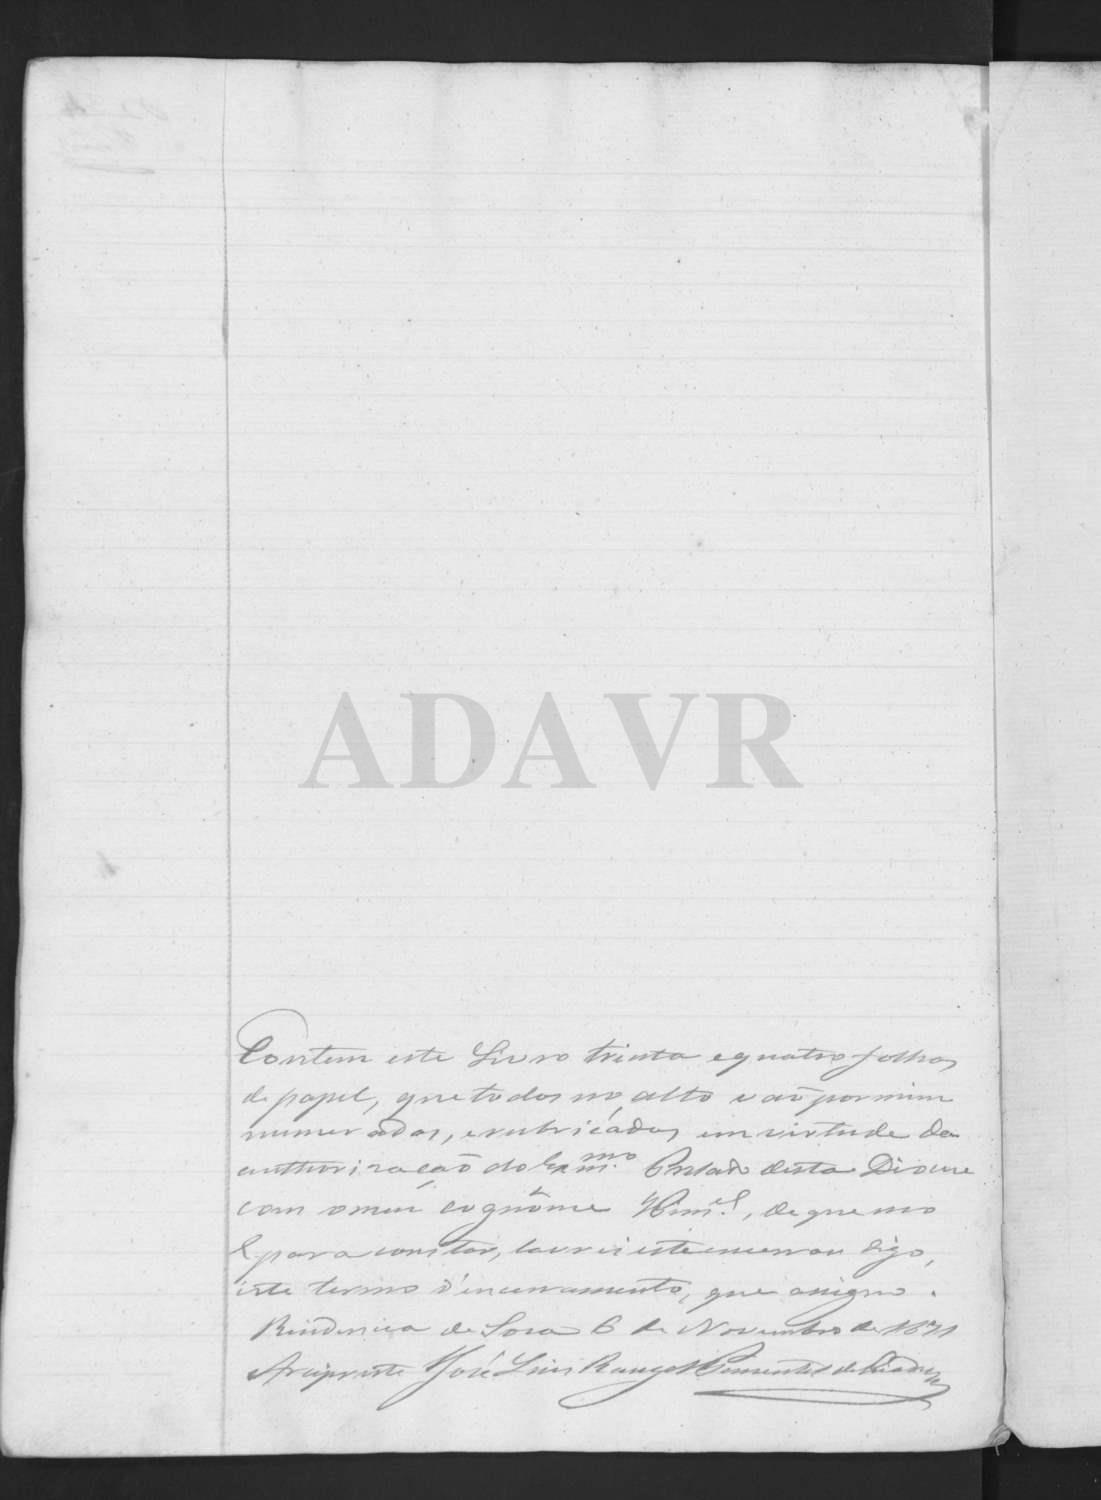 ADAVR
Contem este Livro trinta e quatro folhas
de papel, que todos no alto vão por mim
numeradas, e rubricadas em virtude da
authorização do Exm.mo Prelado desta Diocese
com o meu cognôme de que uso
E para constar, lavrei este encerram digo,
este termo d'encerramento, que assigno.
Residencia de Soza 6 de Novembro de 1871
Arcipreste José Luis Rangel Pimentel de